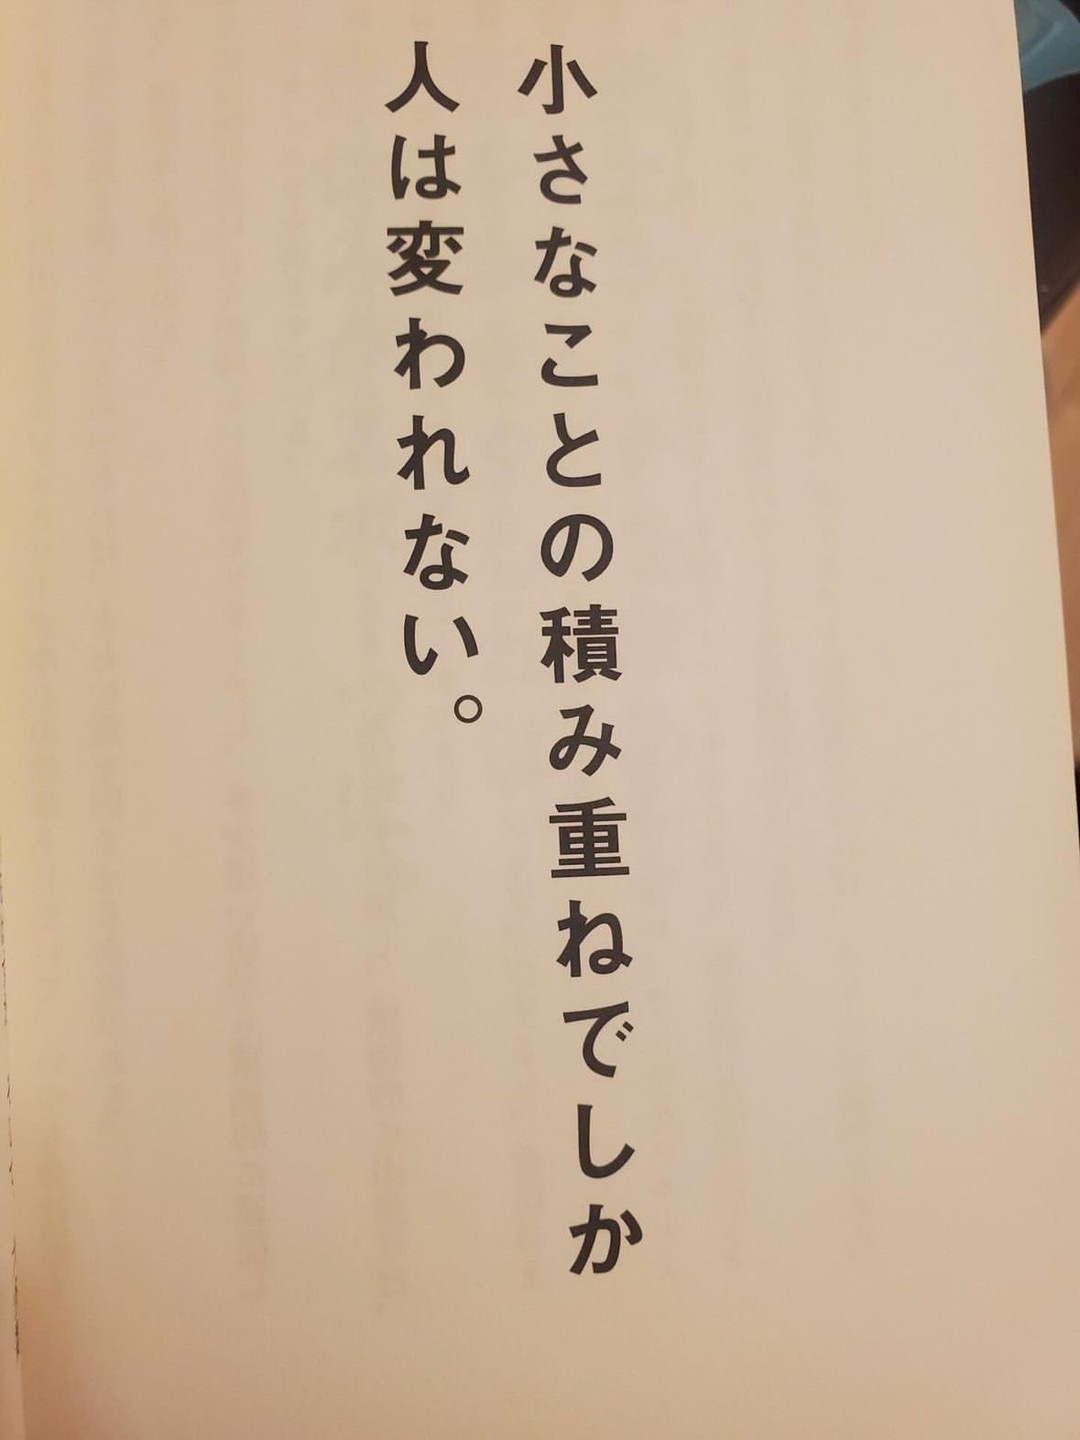 小さなことの積み重ねでしか
人は変われない。